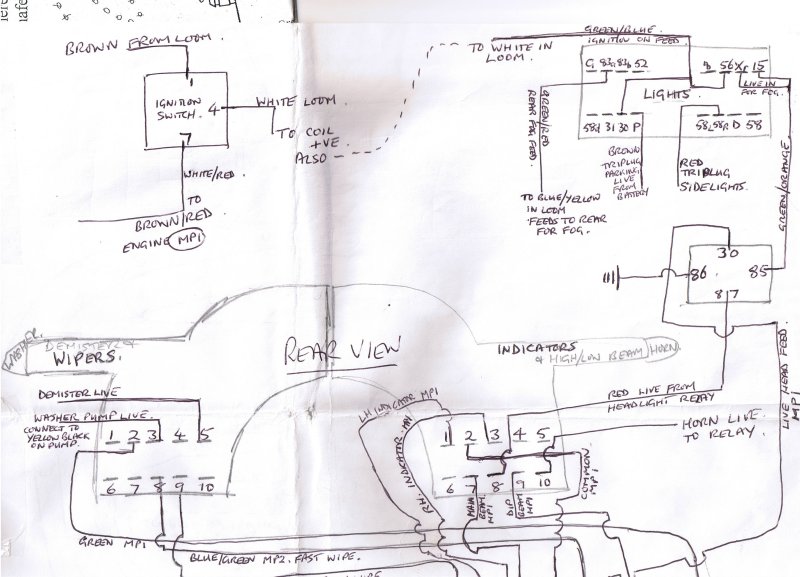 BROWN FROM LOOM.
1
IGNITION
SWITCH.
4
7
WHITE LOOM.
TO COIL
+VE.
ALSO
WHITE/RED.
TO
BROWN/RED
ENGINE MPI
TO WHITE IN
LOOM.
GREEN/BLUE
IGNITION ON FEED
56 X 15
LIGHTS.
LIVE IN
FOR FOG.
58d 31 30 P
58L 58R D 58
GREEN/RED
REAR FOG FEED.
BROWN
TRIPLUG
PARKING
LIVE
FROM
BATTERY
RED
TRIPLUG
SIDELIGHTS.
TO BLUE/YELLOW
IN LOOM
FEEDS TO REAR
FOR FOG.
GREEN/ORANGE
30
86
85
87
LIVE HEAD FEED.
MPI
WASHER.
DEMISTER &
WIPERS.
REAR VIEW
INDICATORS
& HIGH/LOW BEAM HORN
DEMISTER LIVE
WASHER PUMP LIVE.
CONNECT TO
YELLOW BLACK
ON PUMP.
1 2 3 4 5
6 7 8 9 10
GREEN MPI
BLUE/GREEN MP2. FAST WIPE.
WIPE
LH INDICATOR MPI
RH. INDICATOR MPI
RED LIVE FROM
HEADLIGHT RELAY
HORN LIVE
TO RELAY.
1 2 3 4 5
6 7 8 9 10
MAIN
BEAM
MPI
DIP
BEAM
MPI
COMMON
MPI